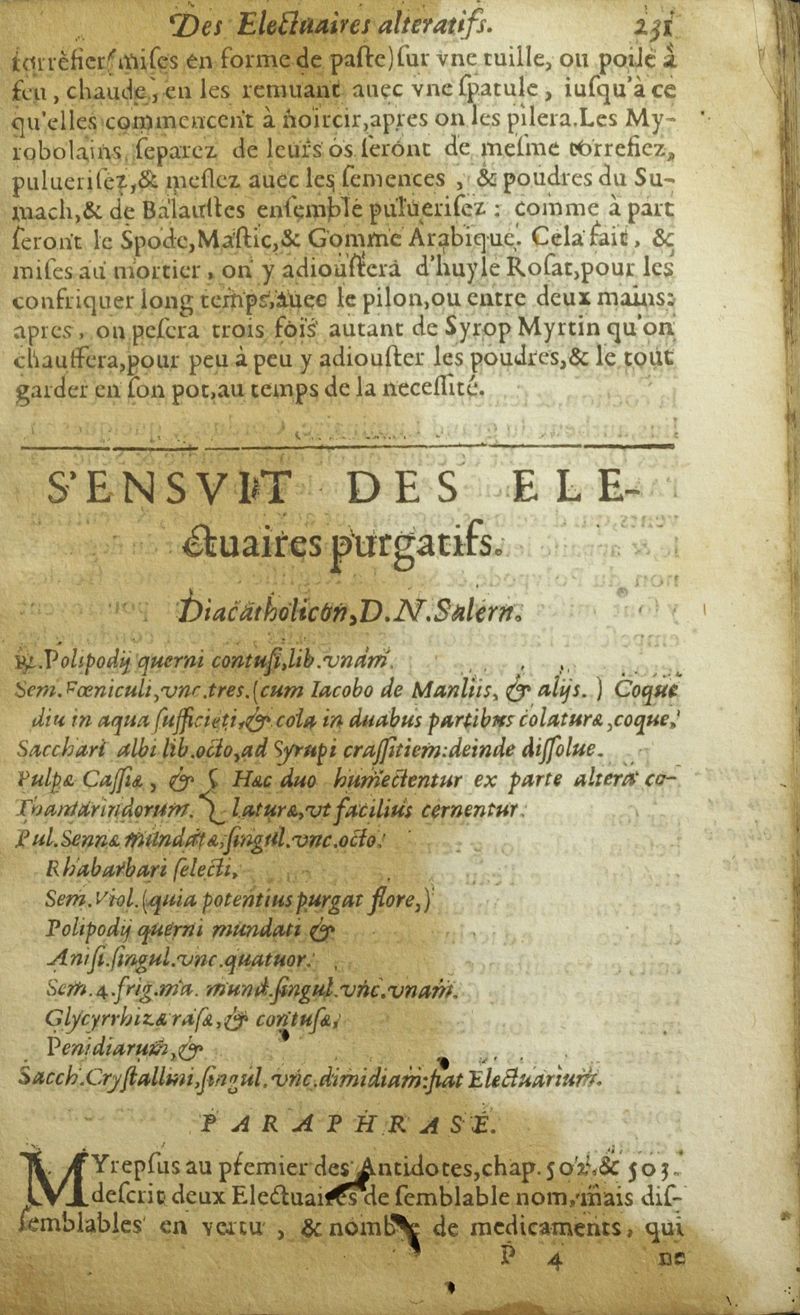 Des Electuaires alteratifs. 231
torrefier (mises en forme de paste) sur vne tuille, ou poile à
feu, chaude, en les remuant auec vne spatule, iusqu'à ce
qu'elles commencent à noircir, apres on les pilera. Les My-
robolains, separez de leurs os seront de mesme torrefiez,
puluerisez, & meslez auec les semences, & poudres du Su-
mach, & de Balaustes ensemble puluerisez : comme à part
seront le Spode, Mastic, & Gomme Arabique. Cela fait, &
mises au mortier, on y adioustera d'huyle Rosat, pour les
confriquer long temps, auec le pilon, ou entre deux mains:
apres, on pesera trois fois autant de Syrop Myrtin qu'on
chauffera, pour peu à peu y adiouster les poudres, & le tout
garder en son pot, au temps de la necessité.
S'ENSVIT DES ELE-
ctuaires purgatifs.
Diacatholicon, D. N. Salern.
℞. Polipodij querni contusi, lib. vnam.
Sem. Fœniculi, vnc. tres. (cum Iacobo de Manliis, & alijs. ) Coque
diu in aqua sufficieti, & cola in duabus partibus colaturæ, coque,
Sacchari albi lib. octo, ad Syrupi crassitiem: deinde dissolue.
Pulpæ Cassiæ, & { Hæc duo humectentur ex parte altera co-
Thamarindorum. { laturæ, vt facilius cernentur.
Pul. Sennæ mundatæ, singul. vnc. octo,
Rhabarbari selecti,
Sem. Viol. (quia potentius purgat flore,)
Polipodij querni mundati &
Anisi. singul. vnc. quatuor.
Sem. 4. frig. ma. mund. singul. vnc. vnam.
Glycyrrhizæ rasæ, & contusæ,
Penidiarum, &
Sacch. Crystallini, singul. vnc. dimidiam: fiat Electuarium.
PARAPHRASE.
MYrepsus au premier des Antidotes, chap. 502. & 503.
descrit deux Electuaires de semblable nom, mais dis-
semblables en vertu, & nombre de medicaments, qui
P 4 ne